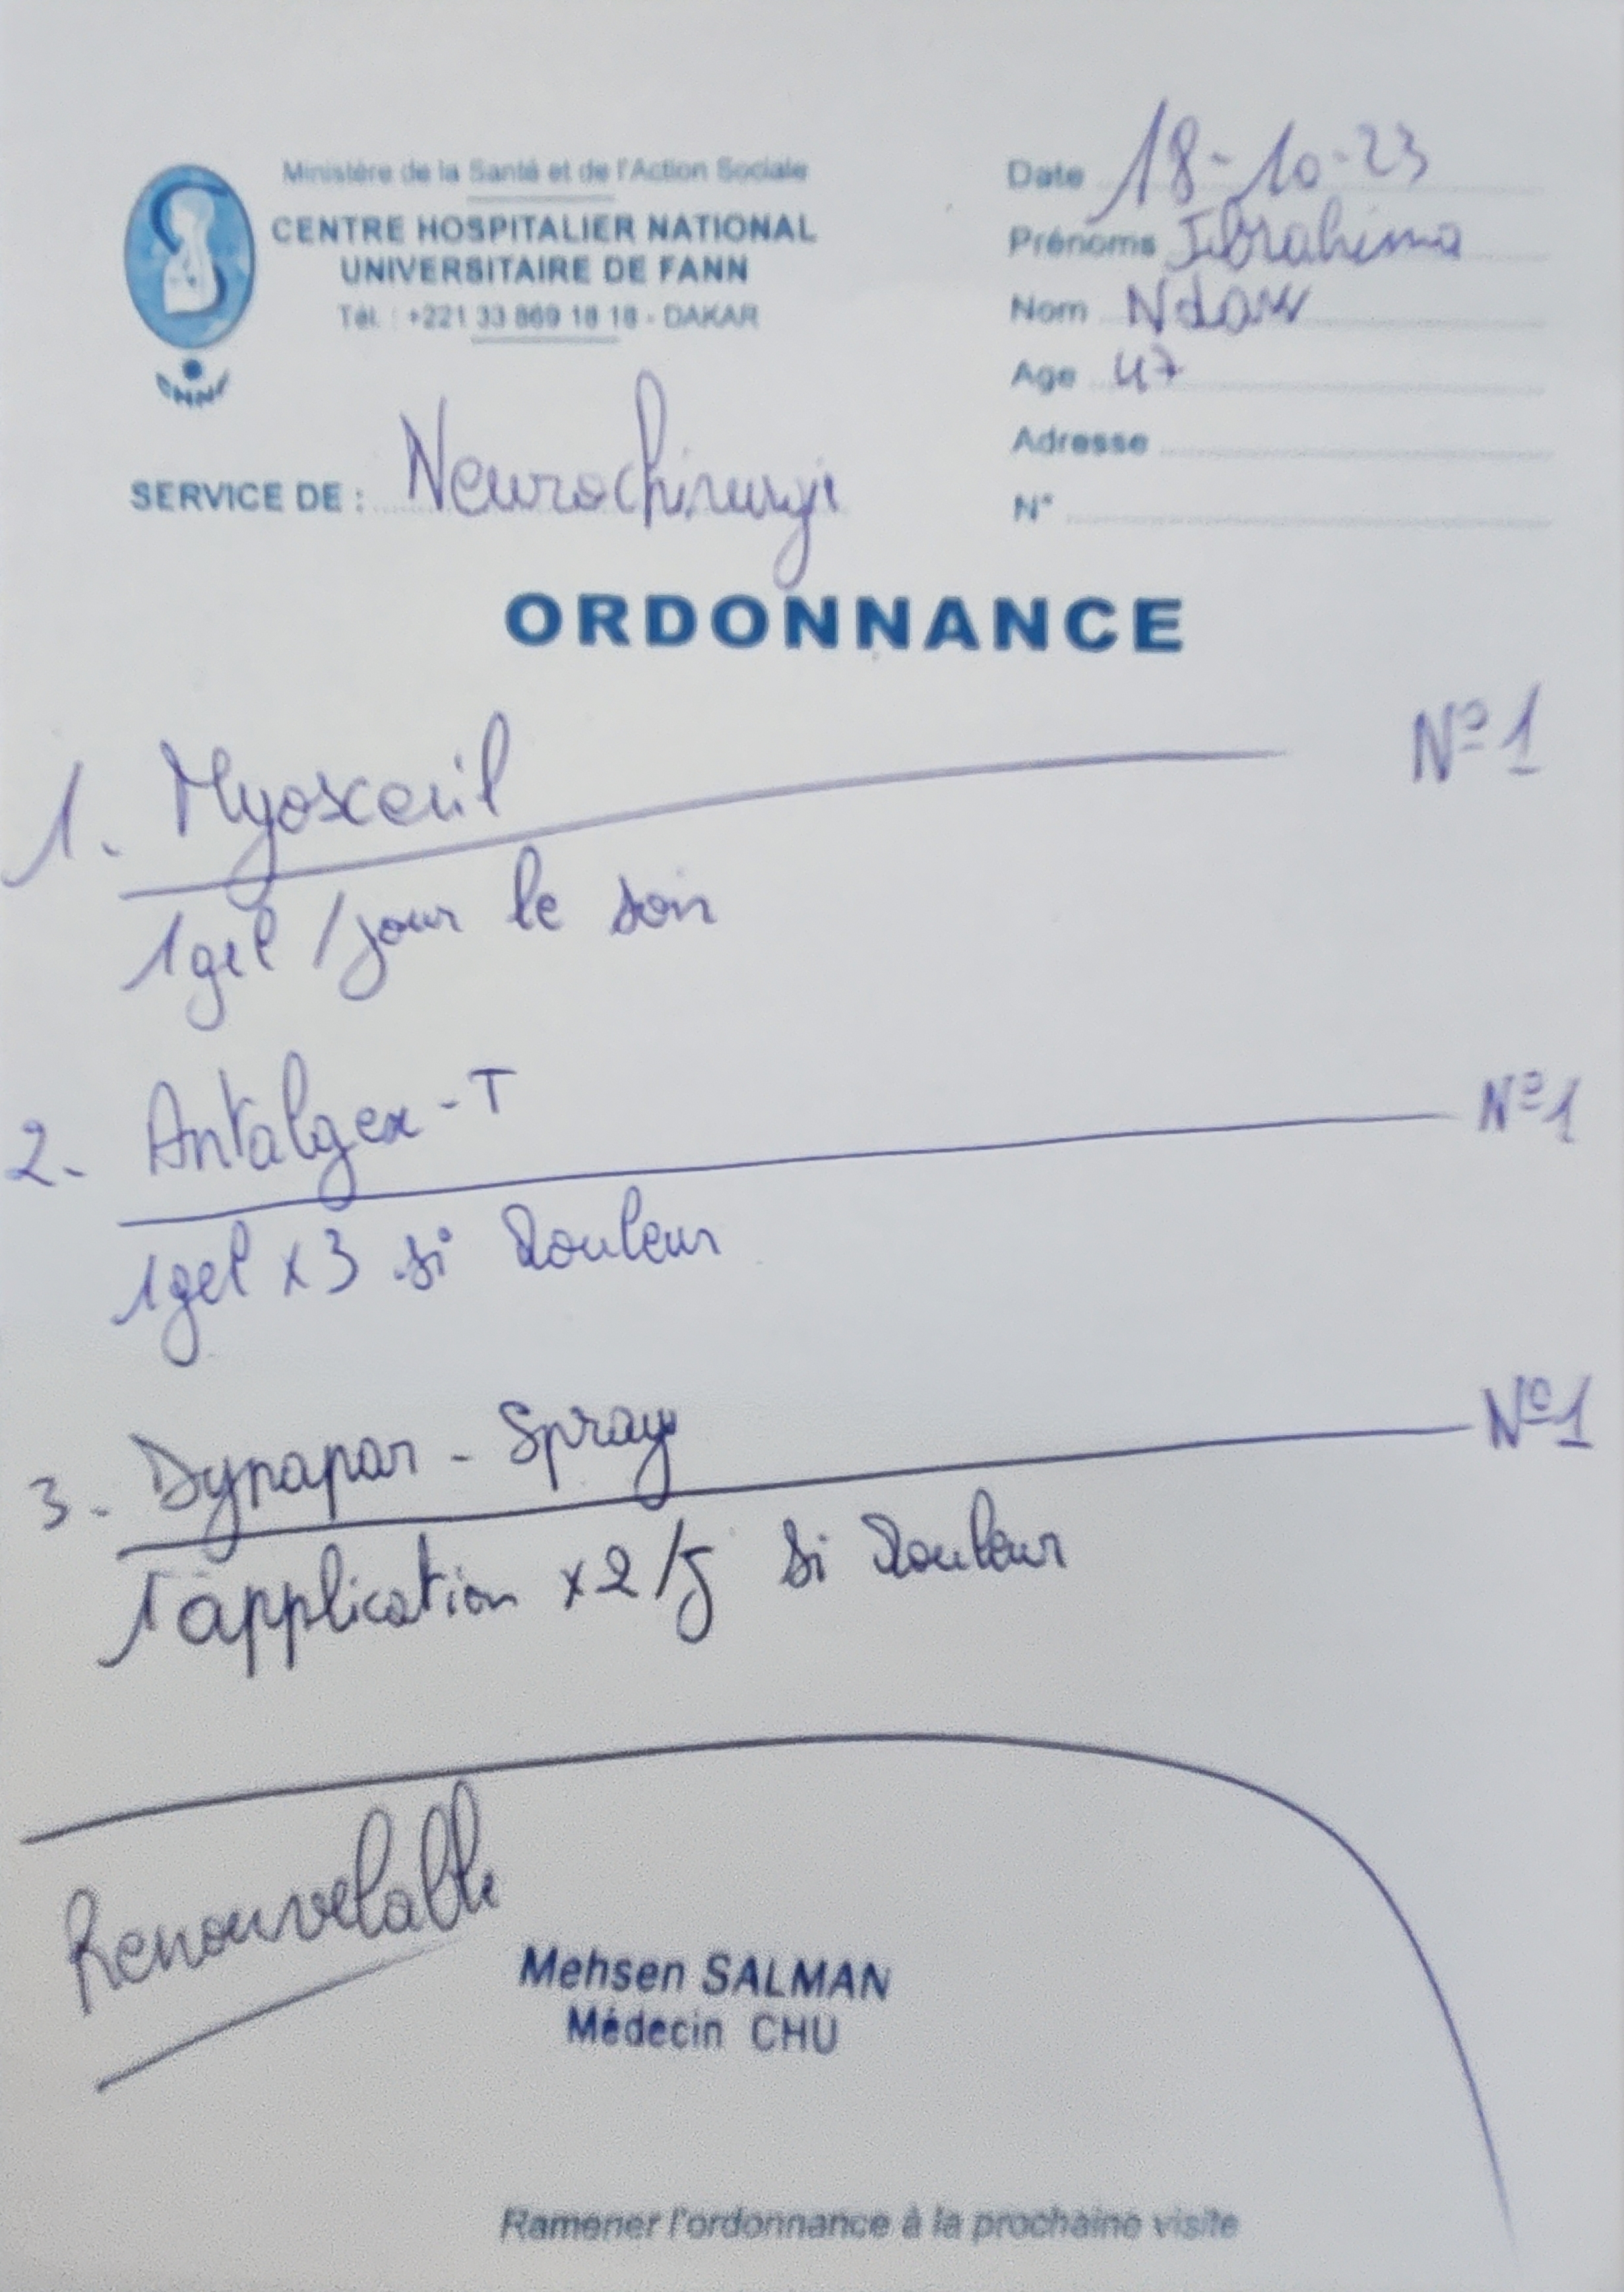 Ministère de la Santé et de l'Action Sociale
CENTRE HOSPITALIER NATIONAL
UNIVERSITAIRE DE FANN
Tél. : +221 33 869 18 18 - DAKAR
SERVICE DE : Neurochirurgie
Date 18-10-23
Prénoms Ibrahima
Nom Ndaw
Age 47
Adresse
N°
ORDONNANCE
1. Myoxceril N°1
1gel / jour le soir
2. Antalgex-T N°1
1gel x3 si douleur
3. Dynapar - Spray N°1
1 application x2/j si douleur
Renouvelable
Mehsen SALMAN
Médecin CHU
Ramener l'ordonnance à la prochaine visite